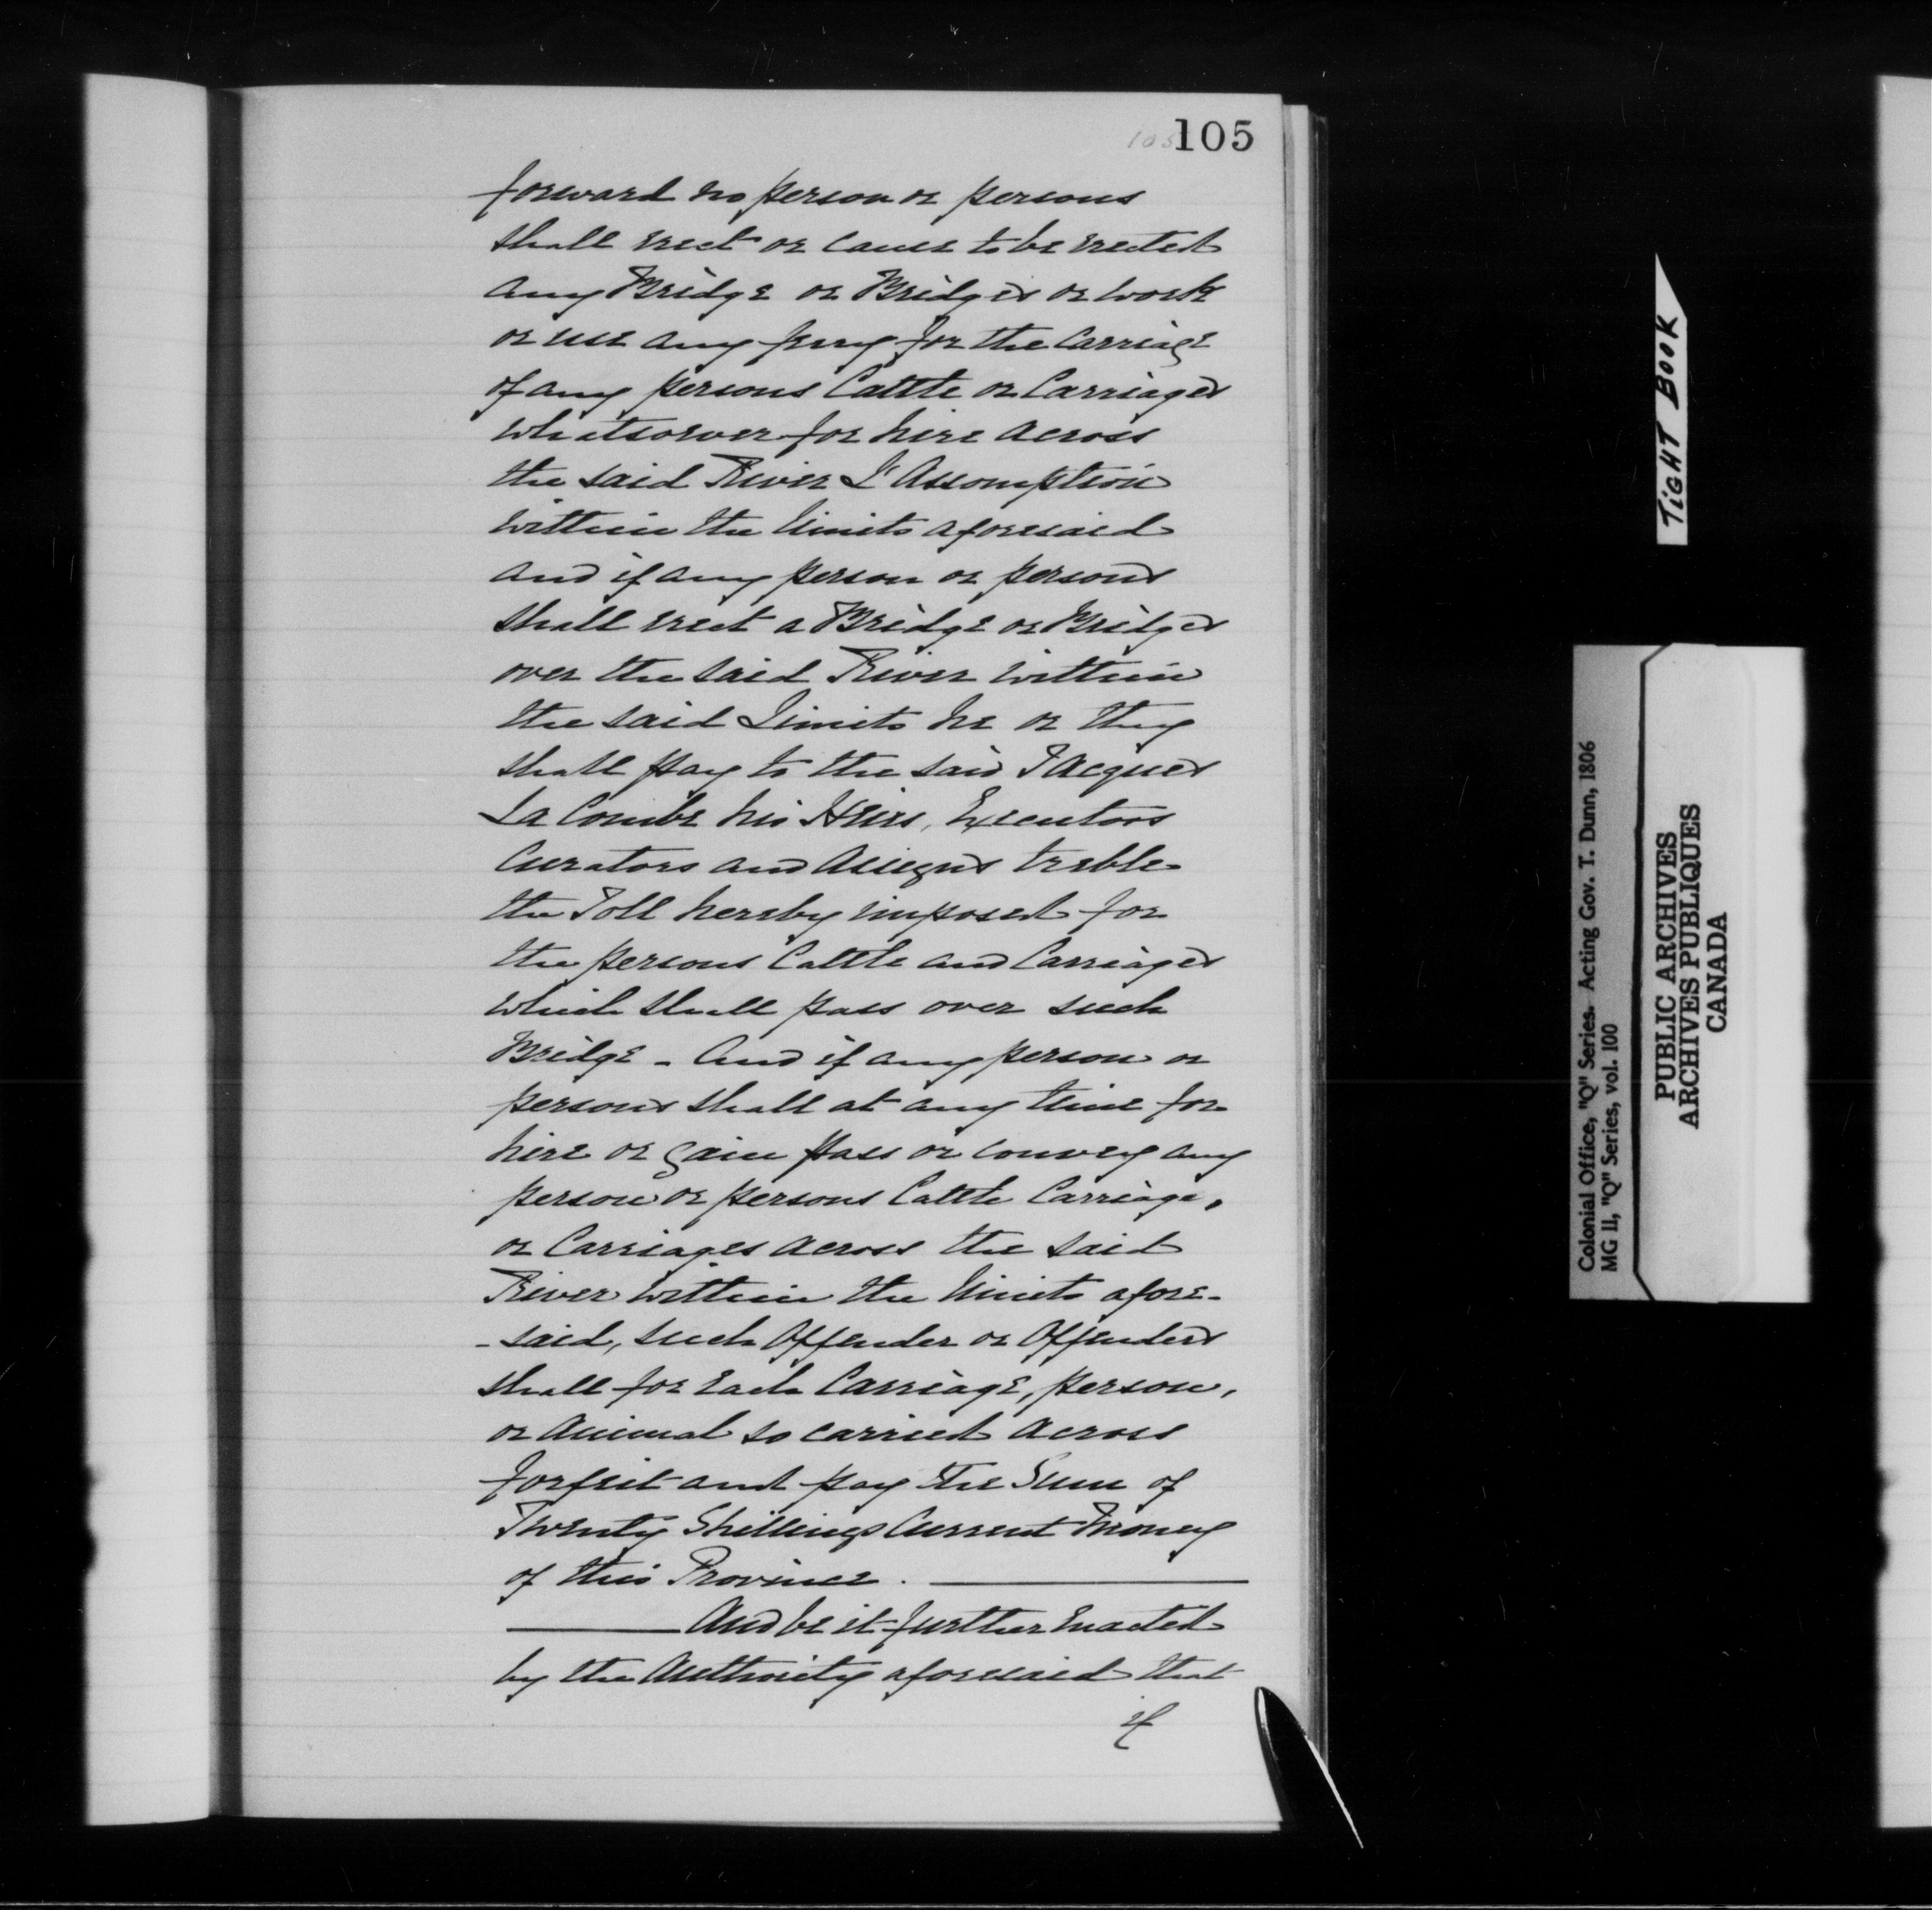 105 105
forward no person or persons
shall erect or cause to be erected
any Bridge or Bridges or work
or use any ferry for the Carriage
of any persons Cattle or Carriages
whatsoever for hire across
the said River L'Assomption
within the limits aforesaid
and if any person or persons
shall erect a Bridge or Bridges
over the said River within
the said Limits he or they
shall pay to the said Jacques
La Combe his Heirs, Executors
Curators and Assigns treble
the Toll hereby imposed for
the persons Cattle and Carriages
which shall pass over such
Bridge - And if any person or
persons shall at any time for
hire or gain pass or convey any
person or persons Cattle Carriage,
or Carriages across the said
River within the limits afore-
-said, such Offender or Offenders
shall for each Carriage, person,
or Animal so carried across
forfeit and pay the Sum of
Twenty Shillings Current Money
of this Province.
And be it further Enacted
by the Authority aforesaid that
if
TIGHT BOOK
Colonial Office, "Q" Series. Acting Gov. T. Dunn, 1806
MG 11, "Q" Series, vol. 100
PUBLIC ARCHIVES
ARCHIVES PUBLIQUES
CANADA